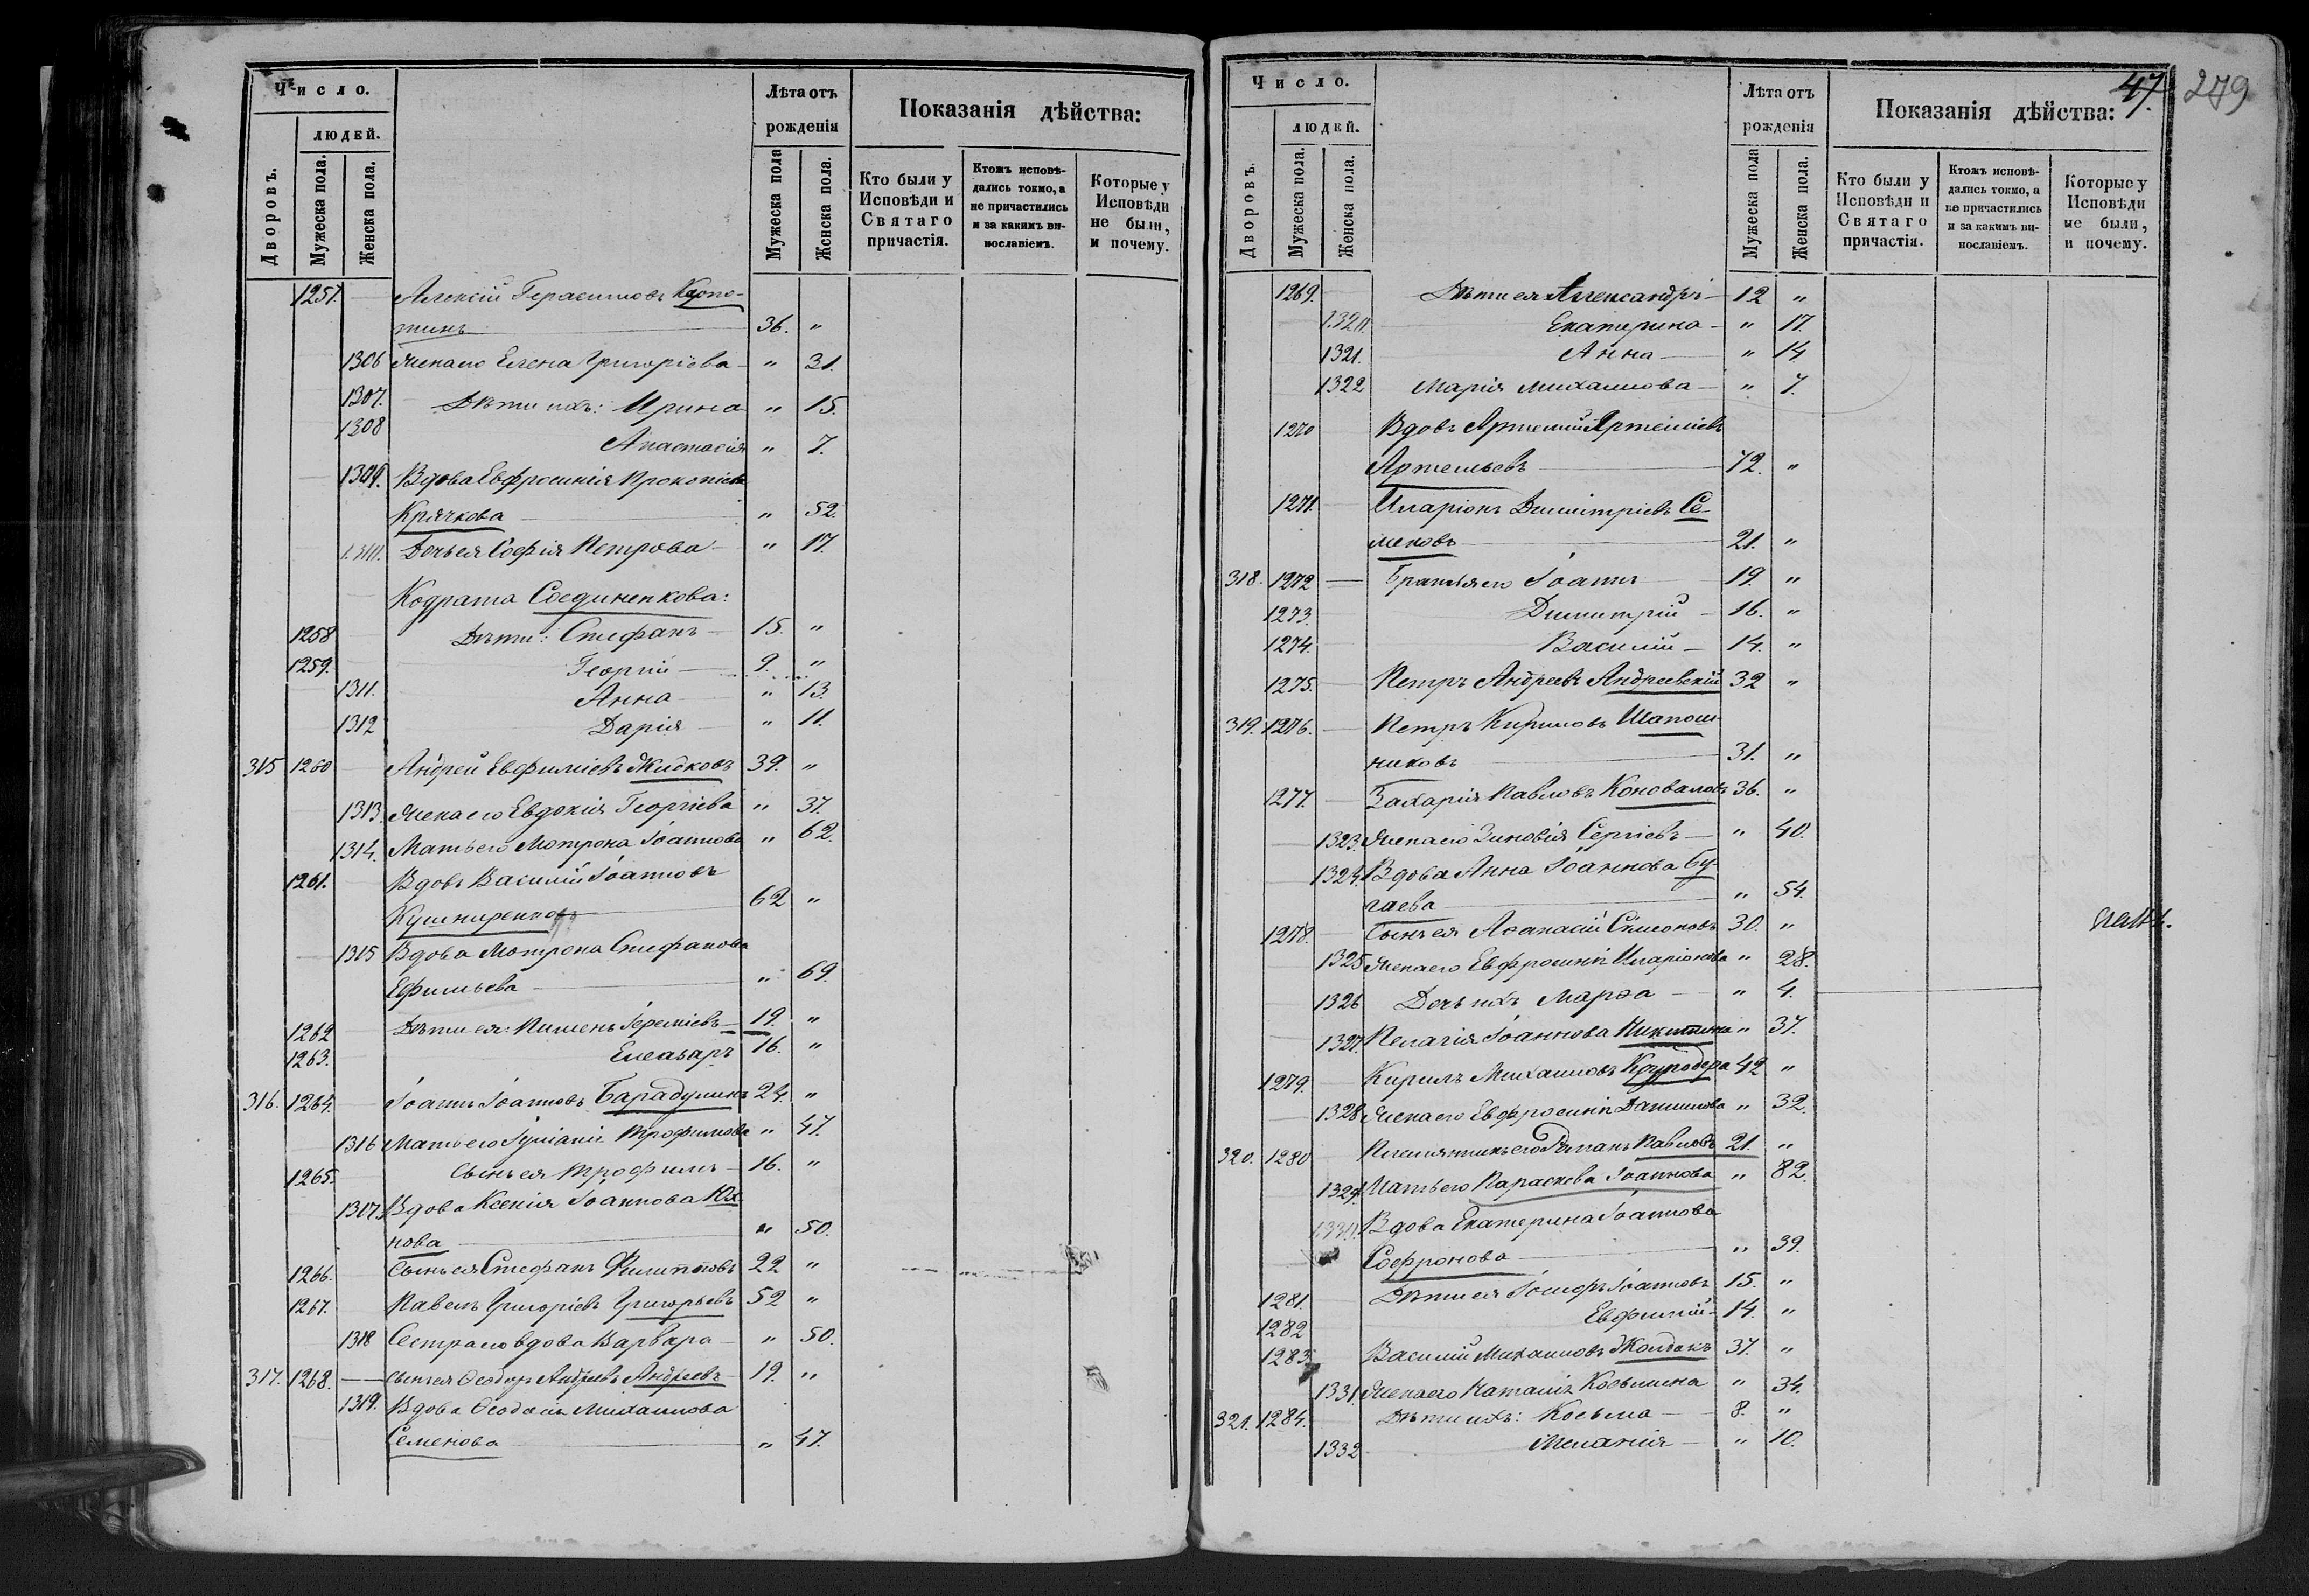 Число.
людей.
Дворовъ.
Мужеска пола.
Женска пола.
Лѣта отъ рожденія
Мужеска пола
Женска пола.
Показанія дѣйства:
Кто были у Исповѣди и Святаго причастія.
Ктожъ исповѣдались токмо, а не причастились и за какимъ винословіемъ.
Которые у Исповѣди не были, и почему.
1257. Алексій Герасимовъ Коро-
тинъ 36. "
1306 Жена его Елена Григоріева " 31.
1307. Дѣти ихъ: Ирина " 15.
1308 Анастасія " 7.
1309. Вдова Евфросинія Прокопіева
Крячкова " 52.
1310. Дочь ея Софія Петрова " 17.
Кодрата Соединенкова:
1258 Дѣти: Стефанъ 15. "
1259. Георгій 9. "
1311. Анна " 13.
1312 Дарія " 11.
315 1260 Андрей Евфиміевъ Жидковъ 39. "
1313. Жена его Евдокія Георгіева " 37.
1314. Мать его Мотрона Іоаннова " 62.
1261. Вдовъ Василій Іоанновъ
Кушниренковъ 62 "
1315 Вдова Мотрона Стефанова
Ефимьева " 69.
1262 Дѣти ея: Пименъ Іереміевъ 19. "
1263. Елеазаръ 16. "
316. 1264. Іоаннъ Іоанновъ Барадулинъ 24. "
1316 Мать его Іуліанія Трофимова " 47.
1265. Сынъ ея Трофимъ 16. "
1317. Вдова Ксенія Іоаннова Юх-
нова " 50.
1266. Сынъ ея Стефанъ Филипповъ 22 "
1267. Павелъ Григоріевъ Григорьевъ 52 "
1318 Сестра его вдова Варвара " 50.
317. 1268. Сынъ ея Ѳеодоръ Андреевъ Андреевъ 19. "
1319. Вдова Ѳеодосія Михаилова
Семенова " 47.
47. 279
Число.
людей.
Дворовъ.
Мужеска пола.
Женска пола.
Лѣта отъ рожденія
Мужеска пола
Женска пола.
Показанія дѣйства:
Кто были у Исповѣди и Святаго причастія.
Ктожъ исповѣдались токмо, а не причастились и за какимъ винословіемъ.
Которые у Исповѣди не были, и почему.
1269. Дѣти ея Александръ 12 "
1320. Екатерина " 17.
1321. Анна " 14
1322 Марія Михаилова " 7.
1270 Вдовъ Артемій Артеміевъ
Артемьевъ 72. "
1271. Иларіонъ Димитріевъ Се-
меновъ 21. "
318. 1272 Братья его Іоаннъ 19. "
1273. Димитрій 16. "
1274. Василій 14. "
1275. Петръ Андреевъ Андреевскій 32 "
319. 1276. Петръ Кириловъ Шапош-
никовъ 31. "
1277. Захарія Павловъ Коноваловъ 36. "
1323. Жена его Зиновія Сергіевъ " 40.
1324. Вдова Анна Іоаннова Бу-
гаева " 54.
1278. Сынъ ея Аѳанасій Симеоновъ 30. "
1325 Жена его Евфросинія Иларіонова " 28.
1326 Дочь ихъ Марѳа " 4.
1327. Пелагія Іоаннова Никитина " 37.
1279. Кирилъ Михаиловъ Круподера 42 "
1328 Жена его Евфросинія Даниилова " 32.
320. 1280 Племянникъ его Романъ Павловъ 21. "
1329. Мать его Параскева Іоаннова " 82.
1330. Вдова Екатерина Іоаннова
Софронова " 39.
1281. Дѣти ея Іосифъ Іоанновъ 15. "
1282 Евфимій 14. "
1283. Василій Михаиловъ Жолдакъ 37. "
1331. Жена его Наталія Косьмина " 34.
321. 1284. Дѣти ихъ: Косьма 8. "
1332 Меланія " 10.